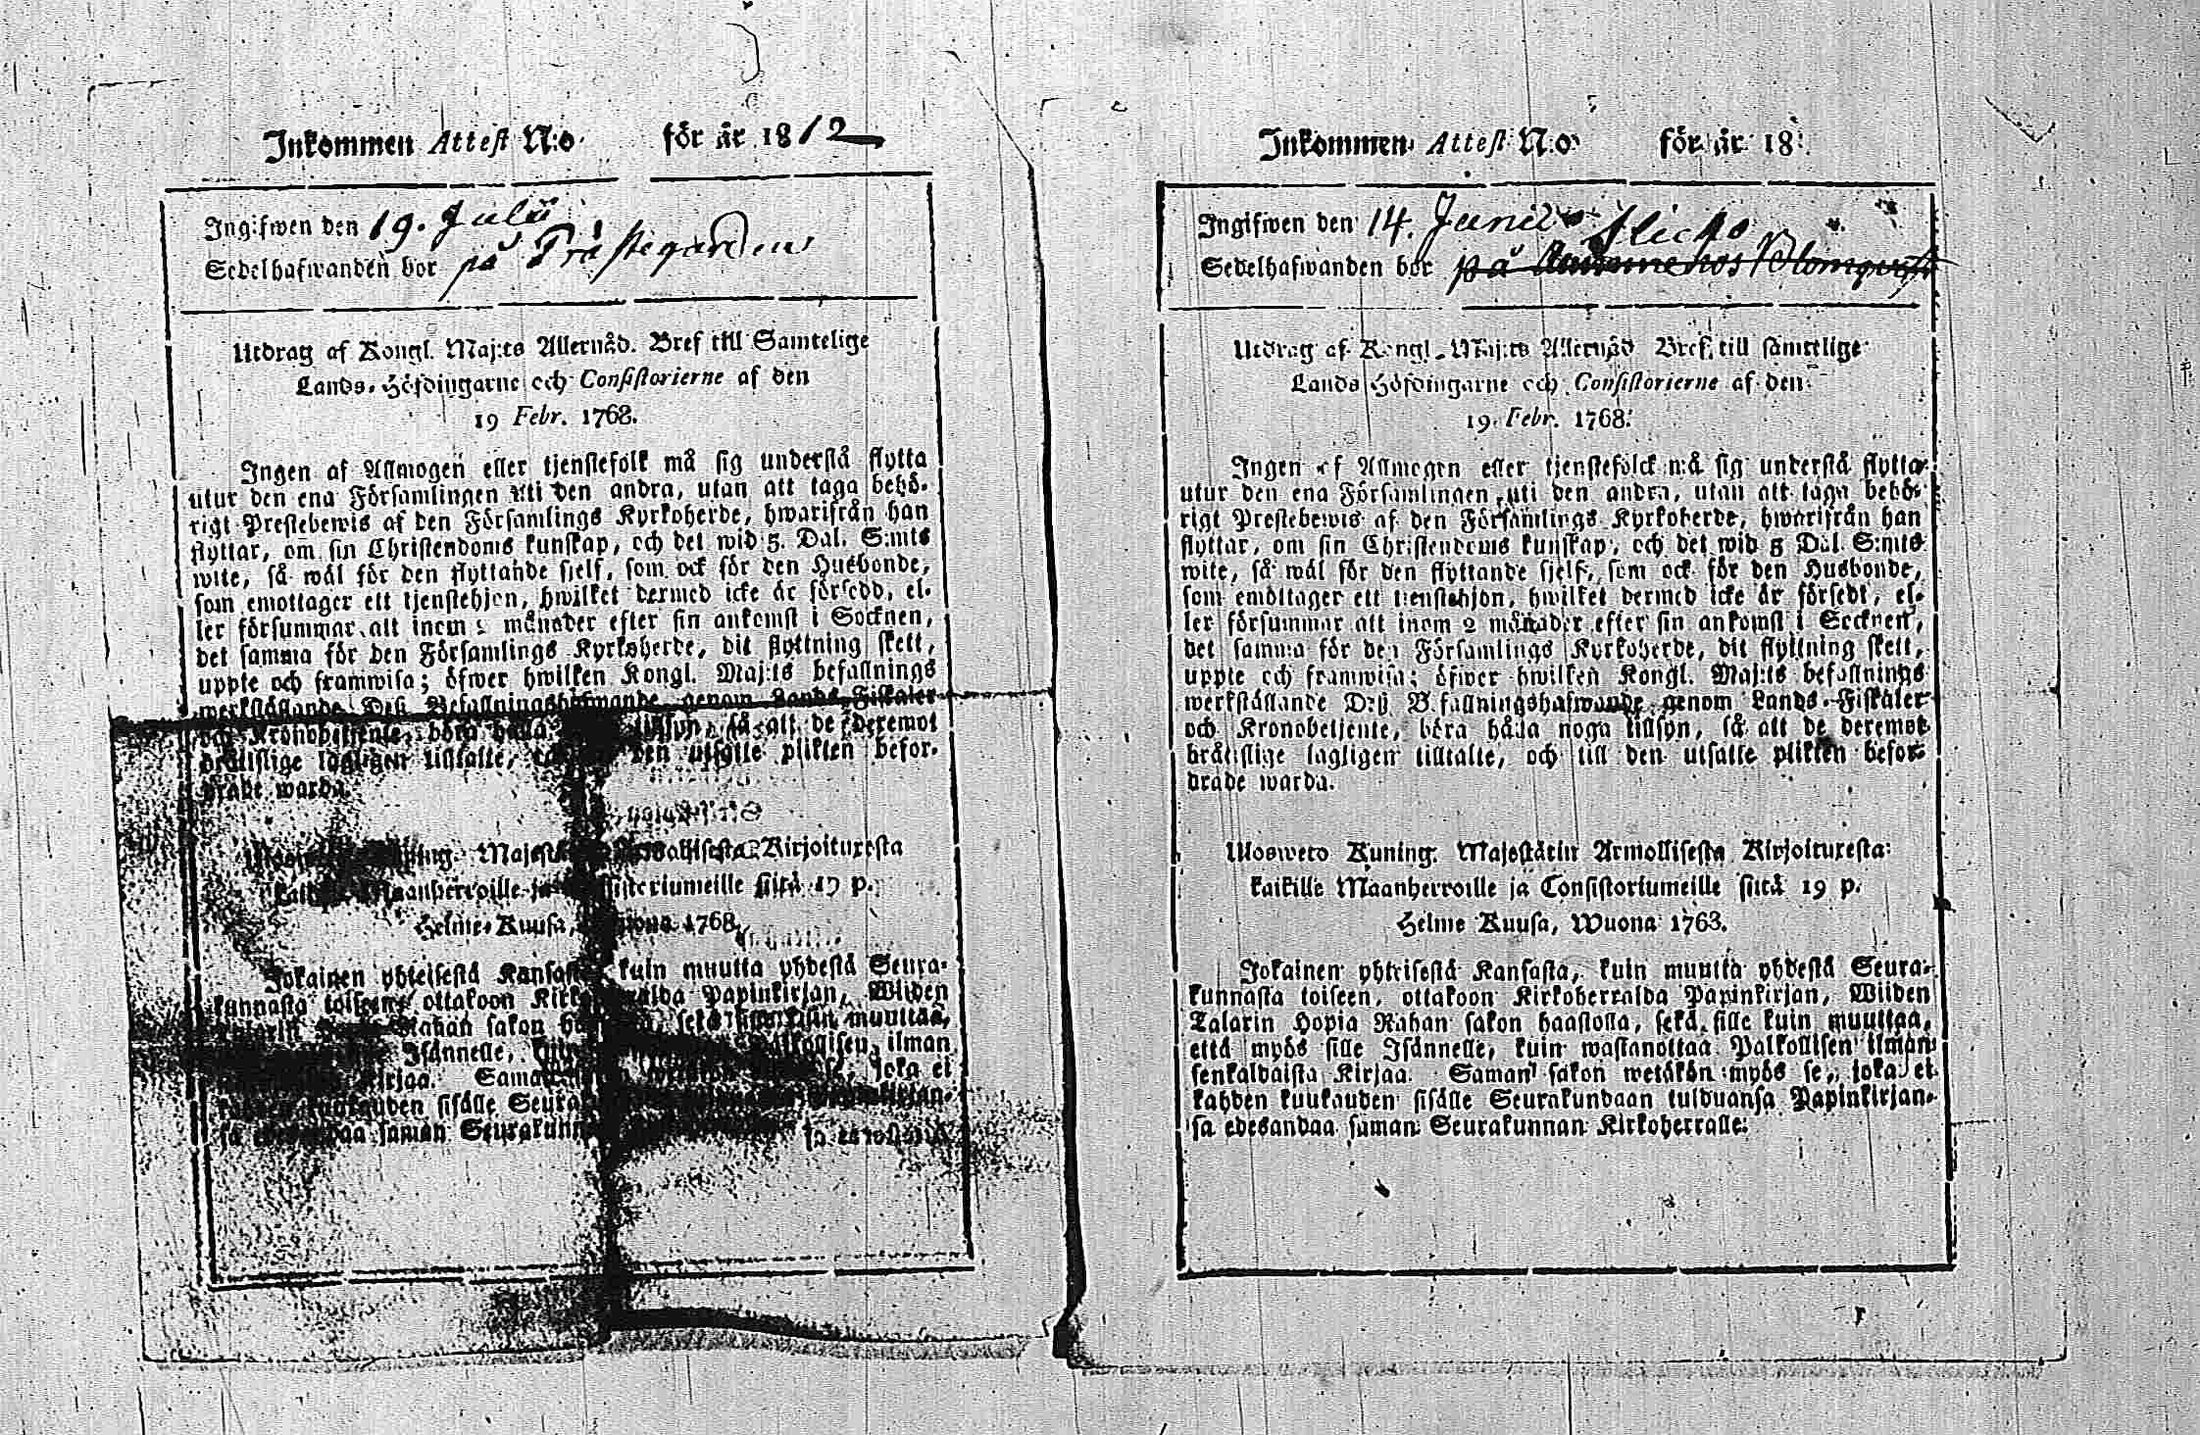 Inkommen Attest N:o för år 1812
Ingifwen den 19. Julii
Sedelhafwanden bor på Prästegården
Utdrag af Kongl. Maj:ts Allernåd. Bref till Samtelige
Lands-Höfdingarne och Consistorierne af den
19 Febr. 1768.
Ingen af Allmogen eller tjenstefolk må sig understå flytta
utur den ena Församlingen uti den andra, utan att taga behö-
rigt Prestebewis af den Församlings Kyrkoherde, hwarifrån han
flyttar, om sin Christendoms kunskap, och det wid 5. Dal. S:mts
wite, så wäl för den flyttande sjelf, som ock för den Husbonde,
som emottager ett tjenstehjon, hwilket dermed icke är försedd, el-
ler försummar att inom 2 månader efter sin ankomst i Socknen,
det samma för den Församlings Kyrkoherde, dit flyttning skett,
uppte och framwisa; öfwer hwilken Kongl. Maj:ts befallnings
werkställande Deß Befallningshafwande genom Lands-Fiskaler
och Kronobetjente, böra hålla tillsyn, så att de deremot
brottslige lagligen tilltalte, den utfalle plikten befor-
drade warda.
Majest Kirjoituxesta
Maanherroille ja sistoriumeille siitä 19 p.
Helme-Kuusa, 1768.
Jokainen yhteisestä Kansasta kuin muutta yhdestä Seura-
kunnasta toiseen, ottakoon Papinkirjan, Wiiden
Rahan sakon sekä muuttaa,
Isännelle, ilman
Kirjaa. Saman joka ei
kuukauden sisälle
saman Seurakunn
Inkommen Attest N:o för år 18
Ingifwen den 14. Junii
Sedelhafwanden bor på hos Blomqvist
Utdrag af Kongl. Maj:ts Allernåd Bref till samtelige
Lands Höfdingarne och Consistorierne af den
19 Febr. 1768.
Ingen af Allmogen eller tjenstefolck må sig understå flytta
utur den ena Församlingen uti den andra, utan att taga behö-
rigt Prestebewis af den Församlings Kyrkoherde, hwarifrån han
flyttar, om sin Christendoms kunskap, och det wid 5 Dal S:mts
wite, så wäl för den flyttande sjelf, som ock för den Husbonde,
som emottager ett tienstehjon, hwilket dermed icke är försedt, el-
ler försummar att inom 2 månader efter sin ankomst i Socknen,
det samma för den Församlings Kyrkoherde, dit flyttning skett,
uppte och framwisa; öfwer hwilken Kongl. Maj:ts befallnings
werkställande Deß Befallningshafwande genom Lands-Fiskaler
och Kronobetjente, böra hålla noga tillsyn, så att de deremot
brottslige lagligen tilltalte, och till den utfalle plikten befor-
drade warda.
Ulosweto Kuning. Majestätin Armollisesta Kirjoituxesta
kaikille Maanherroille ja Consistoriumeille siitä 19 p.
Helme Kuusa, Wuona 1768.
Jokainen yhteisestä Kansasta, kuin muutta yhdestä Seura-
kunnasta toiseen, ottakoon Kirkoherralda Papinkirjan, Wiiden
Talarin Hopia Rahan sakon haastolla, sekä sille kuin muuttaa,
että myös sille Isännelle, kuin wastanottaa Palkollisen ilman
senkaldaista Kirjaa. Saman sakon wetäkön myös se, joka ei
kahden kuukauden sisälle Seurakundaan tulduansa Papinkirjan-
sa edesandaa saman Seurakunnan Kirkoherralle.